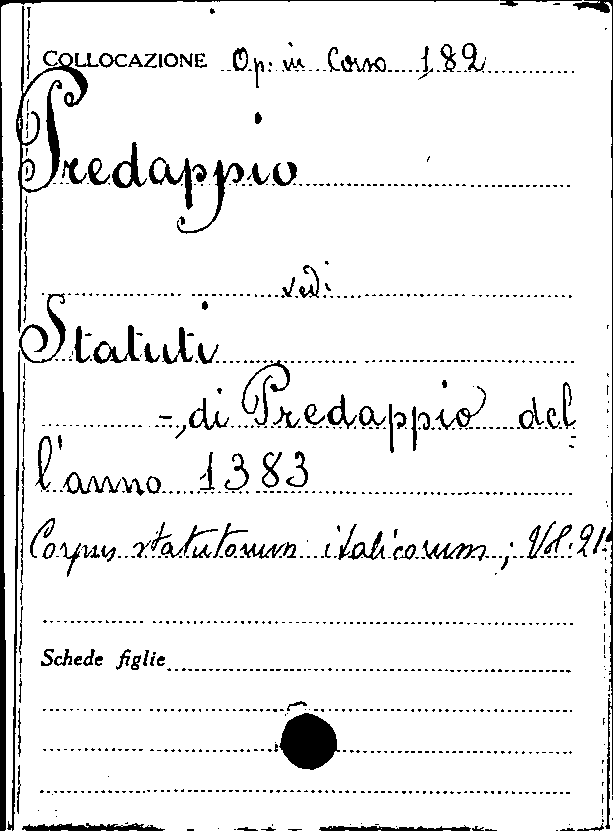 COLLOCAZIONE Op. in Corso 182
Predappio
vedi
Statuti
-, di Predappio del=
l'anno 1383
Corpus statutorum italicorum; Vol. 21º
Schede figlie